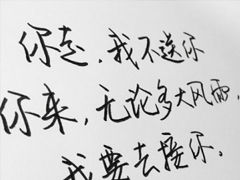 你走,我不送你
你来,无论多大风雨,
我要去接你.